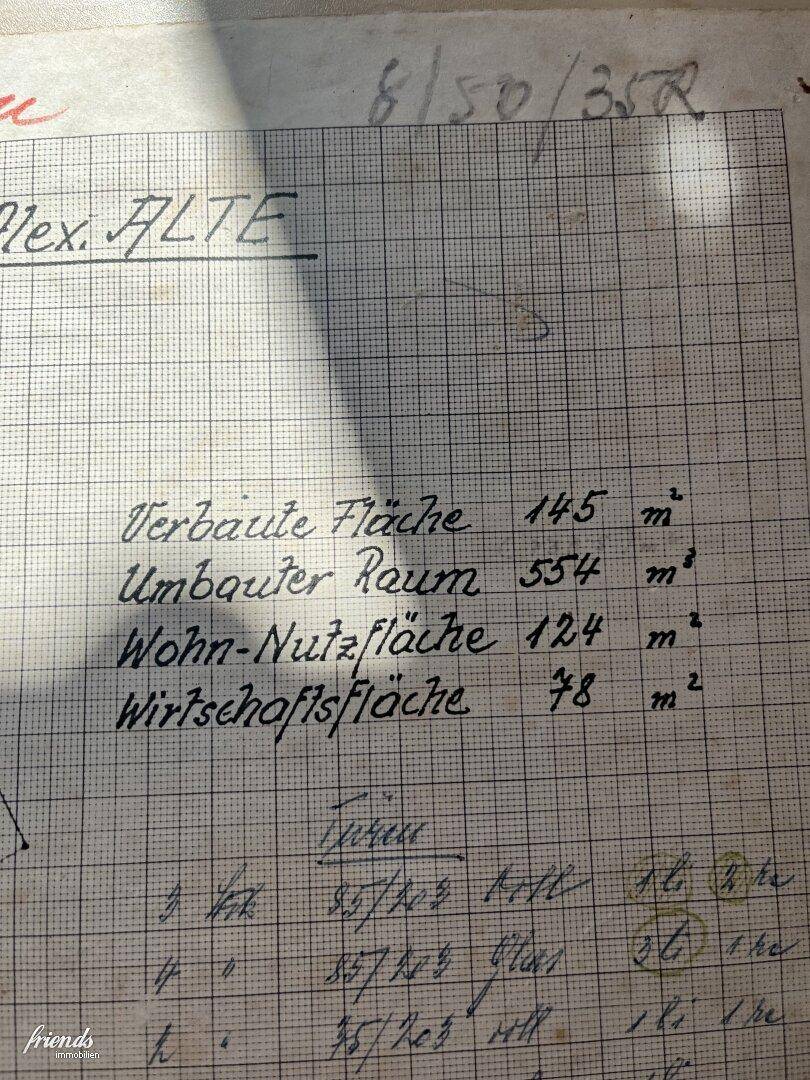 8/50/35R
Alex. ALTE
Verbaute Fläche 145 m²
Umbauter Raum 554 m³
Wohn-Nutzfläche 124 m²
Wirtschaftsfläche 78 m²
Türen
3 Stk 85/203 voll 1 li 2 re
4 " 85/203 Glas 3 li 1 re
2 " 75/203 voll 1 li 1 re
friends
immobilien